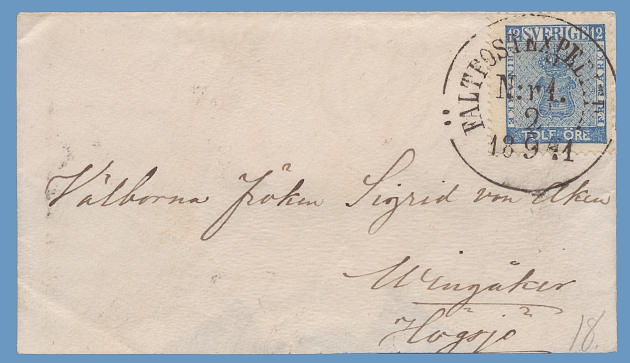 12 SVERIGE 12
FÄLTPOSTEXPEDIT
N:r 1.
2
18 9 41
TOLF ÖRE
Välborna Fröken Sigrid von Aken
Wingåker
Högsjö
18.